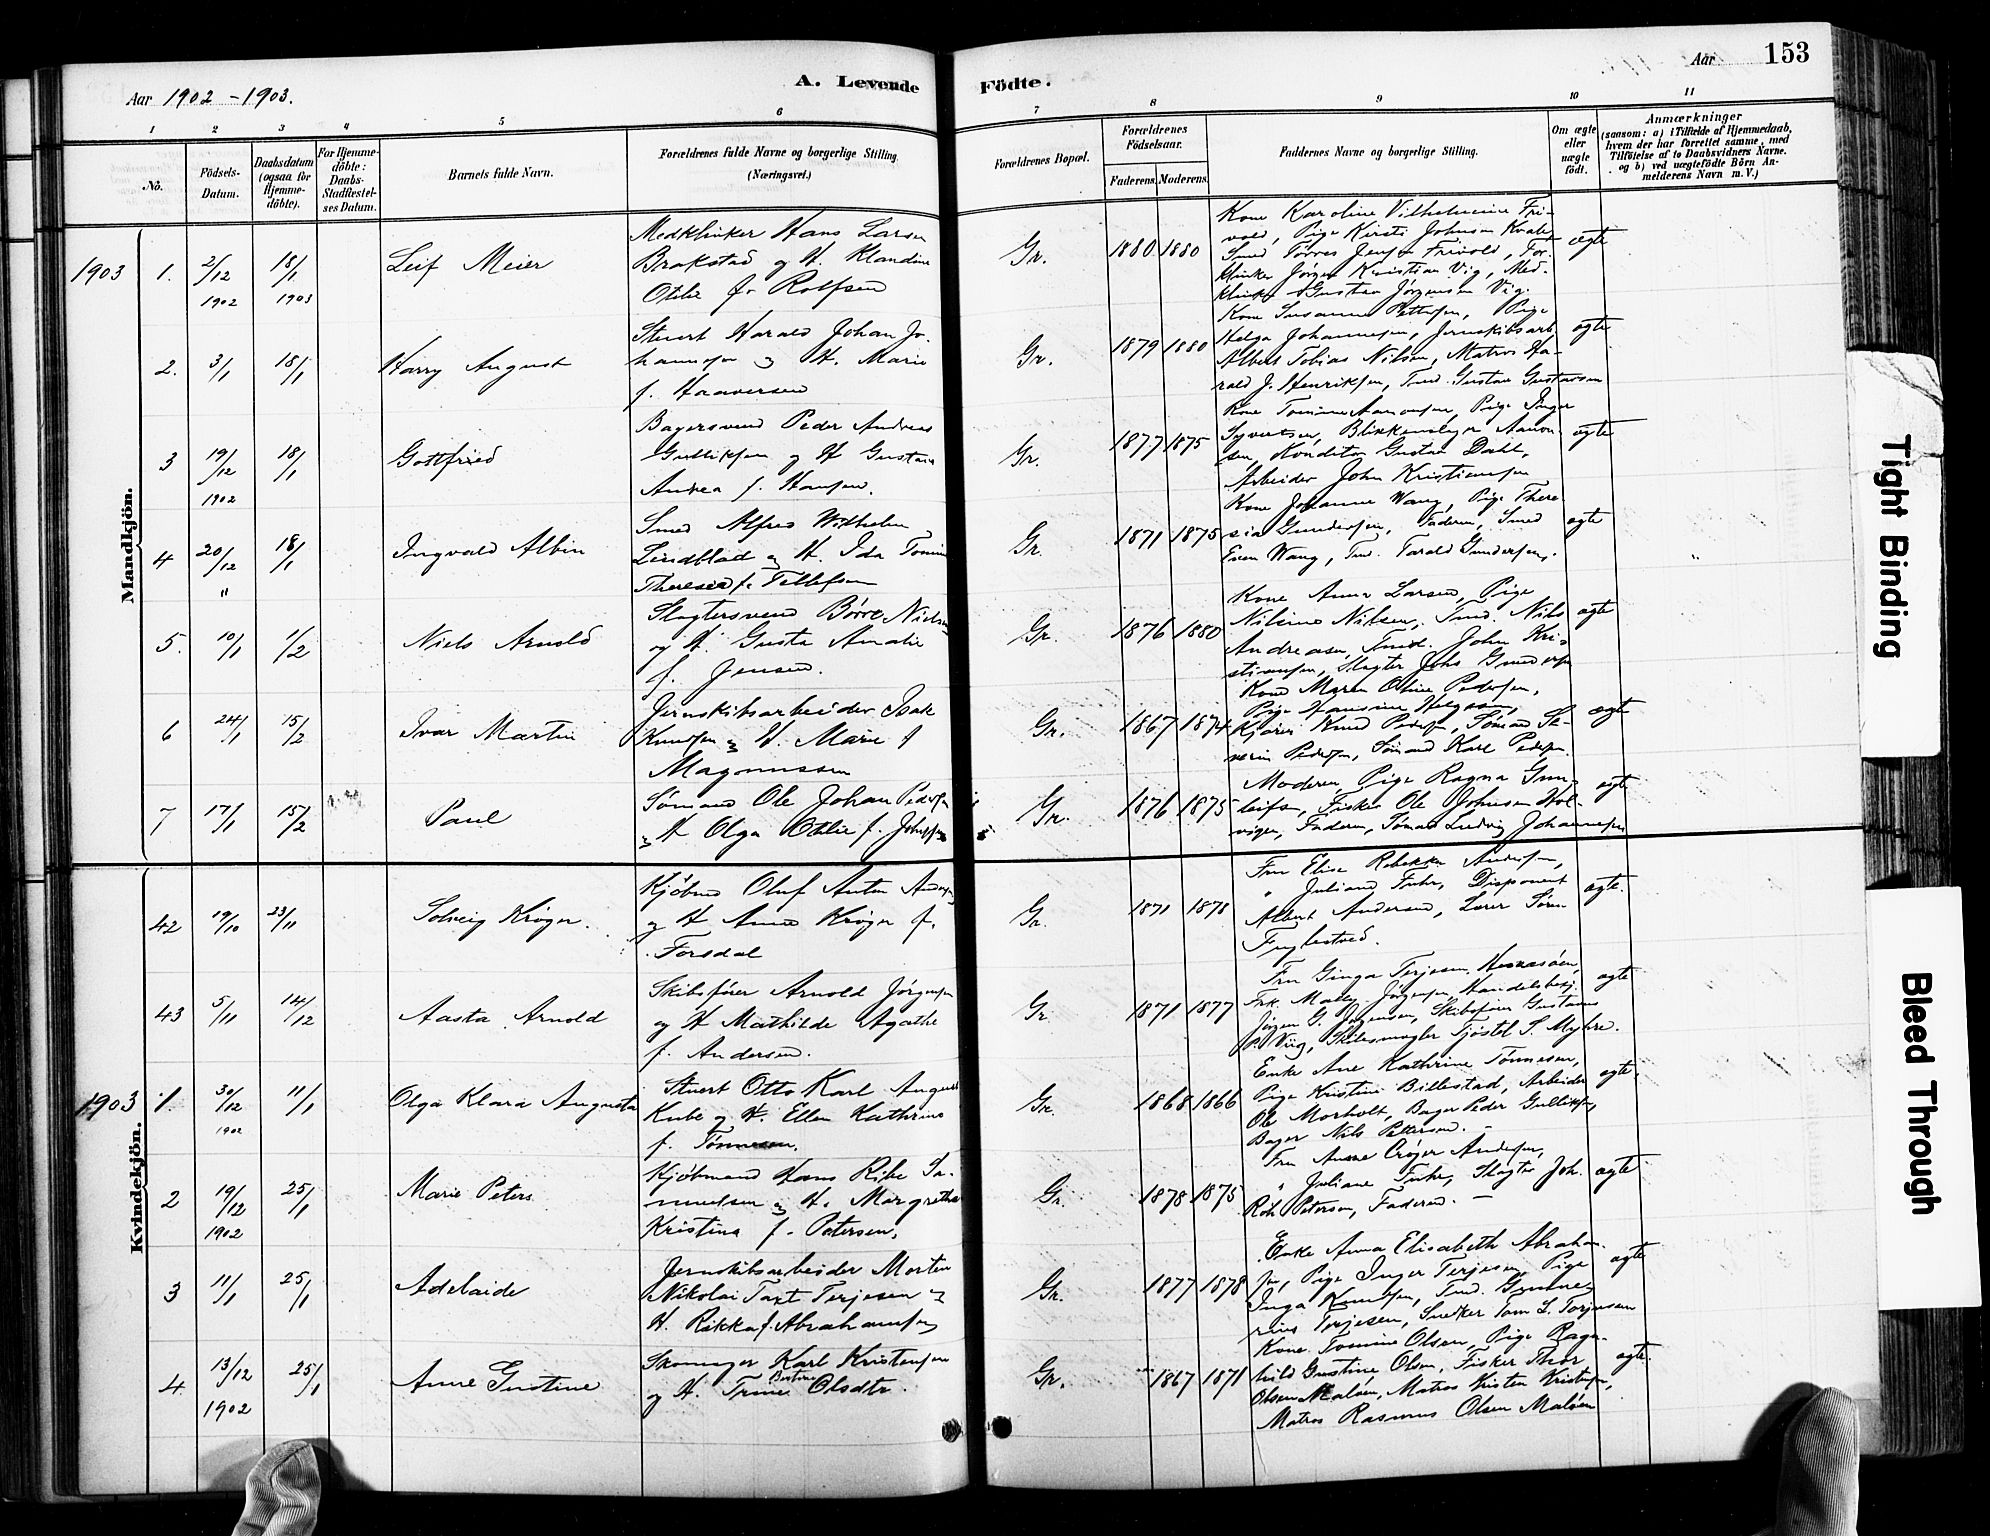 153
A. Levende Födte.
Aar 1902-1903.
Aar
1 2 3 4 5 6 7 8 9 10 11
No.
Födsels-Datum.
Daabsdatum (ogsaa for Hjemme-döbte).
For Hjemme-döbte: Daabs-Stadfæstelses Datum.
Barnets fulde Navn.
Forældrenes fulde Navne og borgerlige Stilling (Næringsvei.)
Forældrenes Bopæl.
Forældrenes Födselsaar.
Faderens. Moderens.
Faddernes Navne og borgerlige Stilling.
Om ægte eller uægte födt.
Anmærkninger
(saasom: a) i Tilfælde af Hjemmedaab, hvem der har forrettet samme, med Tilföielse af to Daabsvidners Navne. og b) ved uægtefödte Börn Anmelderens Navn m. V.)
Mandkjön.
1903 1. 2/12 1902 18/1 1903 Leif Meier
Medklinker Hans Larsen
Brakstad og H. Klandine
Otilie f. Rolfsen
Gr. 1880 1880
Kone Karoline Vilhelmine Fri-
vold, Pige Kirsti Johnsen Kvale,
Smed Tørres Jensen Frivold, For-
klinker Jørgen Kristian Vig, Med-
klinker Gustav Jørgensen Vig.
ægte
2. 3/1 18/1 Harry August
Stuert Harald Johan Jo-
hannesen og H. Marie
f. Haaversen
Gr. 1879 1880
Kone Susanne Pettersen, Pige
Helga Johannesen, Jernskibsarb.
Albert Tobias Nilsen, Matros Ha-
rald J. Henriksen, Tmd. Gustav Gustavsen
ægte
3 19/12 1902 18/1 Gottfried
Bagersvend Peder Andreas
Gulliksen og H. Gustava
Andrea f. Hansen.
Gr. 1877 1875
Kone Tomine Aamonsen, Pige Inger
Syvertsen, Blikkenslager Aamon-
sen, Konditor Gustav Dahl,
Arbeider John Kristiansen
ægte
4 20/12 " 18/1 Ingvald Albin
Smed Alfred Wilhelm
Lindblad og H. Ida Tomine
Theresia f. Tellefsen
Gr. 1871 1875
Kone Johanne Wang, Pige There-
sia Gundersen, Faderen, Smed
Even Wang, Tmd. Tarald Gundersen.
ægte
5. 10/1 1/2 Niels Arnold
Slagtersvend Børre Nielsen
og H. Gusta Amalie
f. Jensen.
Gr. 1876 1880
Kone Anna Larsen, Pige
Nilsine Nilsen, Tmd. Nils
Andreasen, Tmd. John Kri-
stiansen, Slagter Johs Gundersen
ægte
6 24/1 15/2 Ivar Martin
Jernskibsarbeider Isak
Knudsen og H. Marie f
Magnussen
Gr. 1867 1874
Kone Maren Oline Pedersen,
Pige Hansine Helgesen,
Kjører Knud Pedersen, Sømand Se-
verin Pedersen, Sømand Karl Pedersen
ægte
7 17/1 15/2 Paul
Sømand Ole Johan Pedersen
og H Olga Otilie f. Johnsen
Gr. 1876 1875
Moderen, Pige Ragna Gun-
leifsen, Fisker Ole Johnsen Hol-
vigen, Faderen, Sømand Ludvig Johannesen
ægte
Kvindekjön.
42 19/10 23/11 Solveig Krøger.
Kjøbmd Oluf Anton Andersen
og H Anna Krøger f.
Forsdal
Gr. 1871 1878
Fru Elise Rebekka Andersen,
" Juliane Fuhr, Disponent
Albert Andersen, Lærer Søren
Fuglestved.
ægte.
43 5/11 14/12 Aasta Arnold
Skibsfører Arnold Jørgensen
og H Mathilde Agathe
f. Andersen.
Gr. 1871 1877
Fru Ginga Terjesen Hesnesøen,
Frk. Mally Jørgensen, Handelsbetj.
Jørgen G. Jørgensen, Skibsfører Gustav
P. Viig, Skibsmægler Tjøstel S. Myhre.
ægte
1903 1. 30/12 1902 11/1 Olga Klara Augusta
Stuert Otto Karl August
Kube og H. Ellen Kathrine
f. Tønnesen.
Gr. 1868 1866
Enke Ane Kathrine Tønnesen,
Pige Kristine Billestad, Arbeider
Ole Morholt, Bager Peder Gulliksen,
Bager Nils Pettersen. -
ægte.
2 19/12 1902 25/1 Marie Peters
Kjøbmand Hans Ribe Sa-
muelsen og H. Margrethe
Kristina f. Petersen.
Gr. 1878 1875
Fru Anna Crøger Andersen,
" Juliane Fuhr, Slagter Joh.
Rohr Petersen, Faderen. -
ægte
3 11/1 25/1 Adelaide
Jernskibsarbeider Morten
Nikolai Taxt Terjesen og
H. Rikka f. Abrahamsen
Gr. 1877 1878
Enke Anna Elisabeth Abraham-
sen, Pige Inger Terjesen, Pige
Inga Knudsen, Tmd. Gunne-
rius Terjesen, Snedker Tom L. Torjusen
ægte
4 13/12 1902 25/1 Anne Gustine
Skomager Karl Kristensen
og H. Trine Bertine Olsdtr.
Gr. 1867 1871
Kone Tomine Olsen, Pige Ragn-
hild Gustine Olsen, Fisker Thor
Olsen Maløen, Matros Kristen Kristensen,
Matros Rasmus Olsen Maløen
ægte.
Tight Binding
Bleed Through